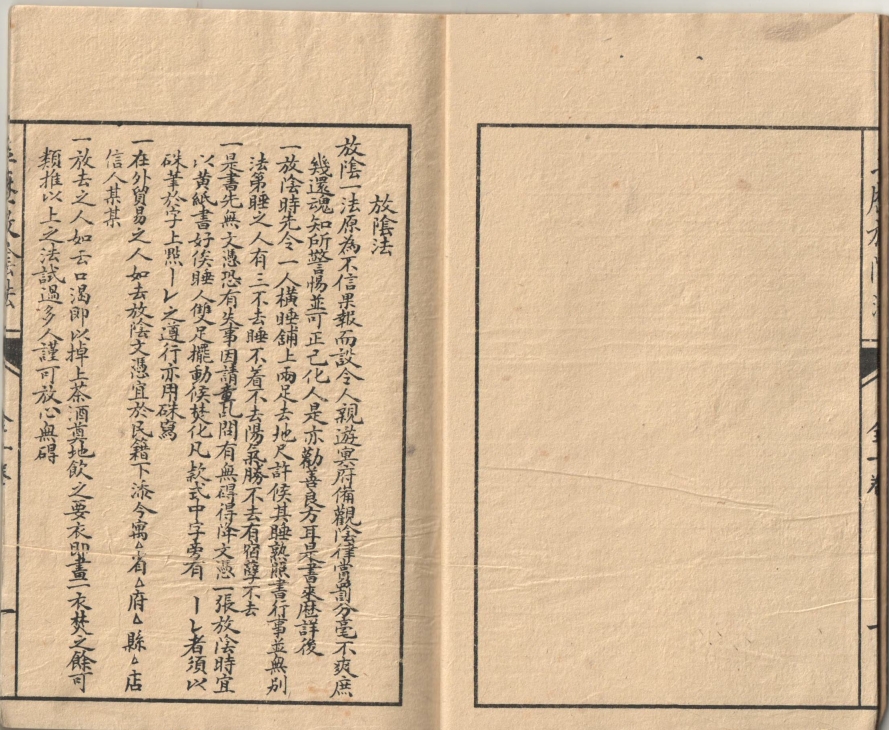 放陰法
放陰一法原為不信果報而設令人親遊冥府備觀陰律賞罰分毫不爽庶
幾還魂知所警惕並可正己化人是亦勸善良方耳是書來歷詳後
一放陰時先令一人橫睡舖上兩足去地尺許候其睡熟照書行事並無別
法第睡之人有三不去睡不着不去陽氣勝不去有宿孽不去
一是書先無文憑恐有失事因請童乩問有無碍得降文憑一張放陰時宜
以黄紙書好俟睡人雙足擺動候焚化凡款式中字旁有丨レ者須以
硃筆於字上㸃丨レ之遵行亦用硃寫
一在外貿易之人如去放陰文憑宜於民籍下添今寓△省△府△縣△店
信人某某
一放去之人如云口渴即以掉上茶酒奠地飲之要衣即畫一衣焚之餘可
類推以上之法試過多人謹可放心無碍
放陰法
全一卷
一